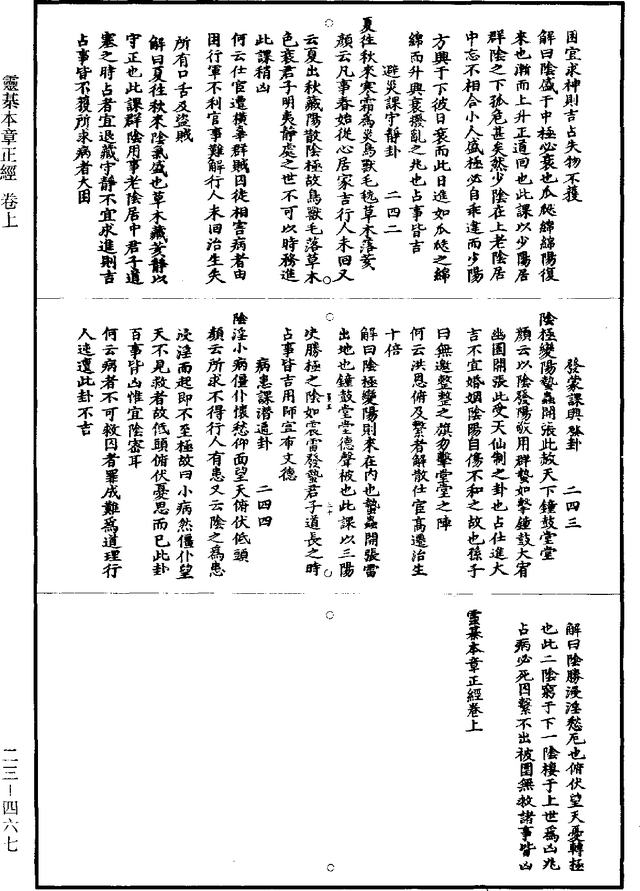 困宜求神則吉占失物不獲
解曰陰盛于中極必衰也瓜瓞綿綿陽復
來也漸而上升正道回也此課以少陽居
群陰之下孤危甚矣然少陰在上老陰居
中忘不相合小人盛極必自乖違而少陽
方興于下彼日衰而此日進如瓜瓞之綿
綿而升興衰撥亂之兆也占事皆吉
避災課守靜卦 二四二
夏往秋來寒霜為災鳥獸毛毨草木落荄
顏云凡事春始從心居家吉行人未回又
云夏出秋藏陽散陰極故鳥獸毛落草木
色衰君子明夷靜處之世不可以時務進
此課稍凶
何云仕宦遭橫辜群賊囚徒相害病者由
困行軍不利官事難解行人未回治生失
所有口舌及盜賊
解曰夏往秋來陰氣盛也草木藏荄靜以
守正也此課群陰用事老陰居中君子道
塞之時占者宜退藏守靜不宜求進則吉
占事皆不獲所求病者大困
發蒙課興發卦 二四三
陰極變陽蟄蟲開張此故天下鐘鼓堂堂
顏云以陰發陽敬用群蟄如擊鐘鼓大宥
幽圄開張此受天仙制之卦也占仕進大
言不宜婚姻陰陽自傷不和之故也孫子
曰無邀整整之旗勿擊堂堂之陣
何云洪恩俯及繫者解散仕宦高遷治生
十倍
解曰陰極變陽則來在內也蟄蟲開張雷
出地也鐘鼓堂堂德聲被也此課以三陽
決勝極之陰如震雷發蟄君子道長之時
占事皆吉用師宜布文德
病患課潛遁卦 二四四
陰淫小病僵仆懷愁仰面望天俯伏低頭
顏云所求不得行人有患又云陰之為患
浸淫而起即不至極故曰小病然僵仆望
天不見救者故低頭俯伏憂思而已此卦
百事皆凶惟宜陰密耳
何云病者不可救囚者罪成難為道理行
人迍邅此卦不吉
解曰陰勝浸淫愁厄也俯伏望天憂轉極
也此二陰窮于下一陰棲于上世為凶兆
占病必死囚繫不出被圍無救諸事皆凶
靈棊本章正經卷上
靈棊本章正經 卷上
二三－四六七